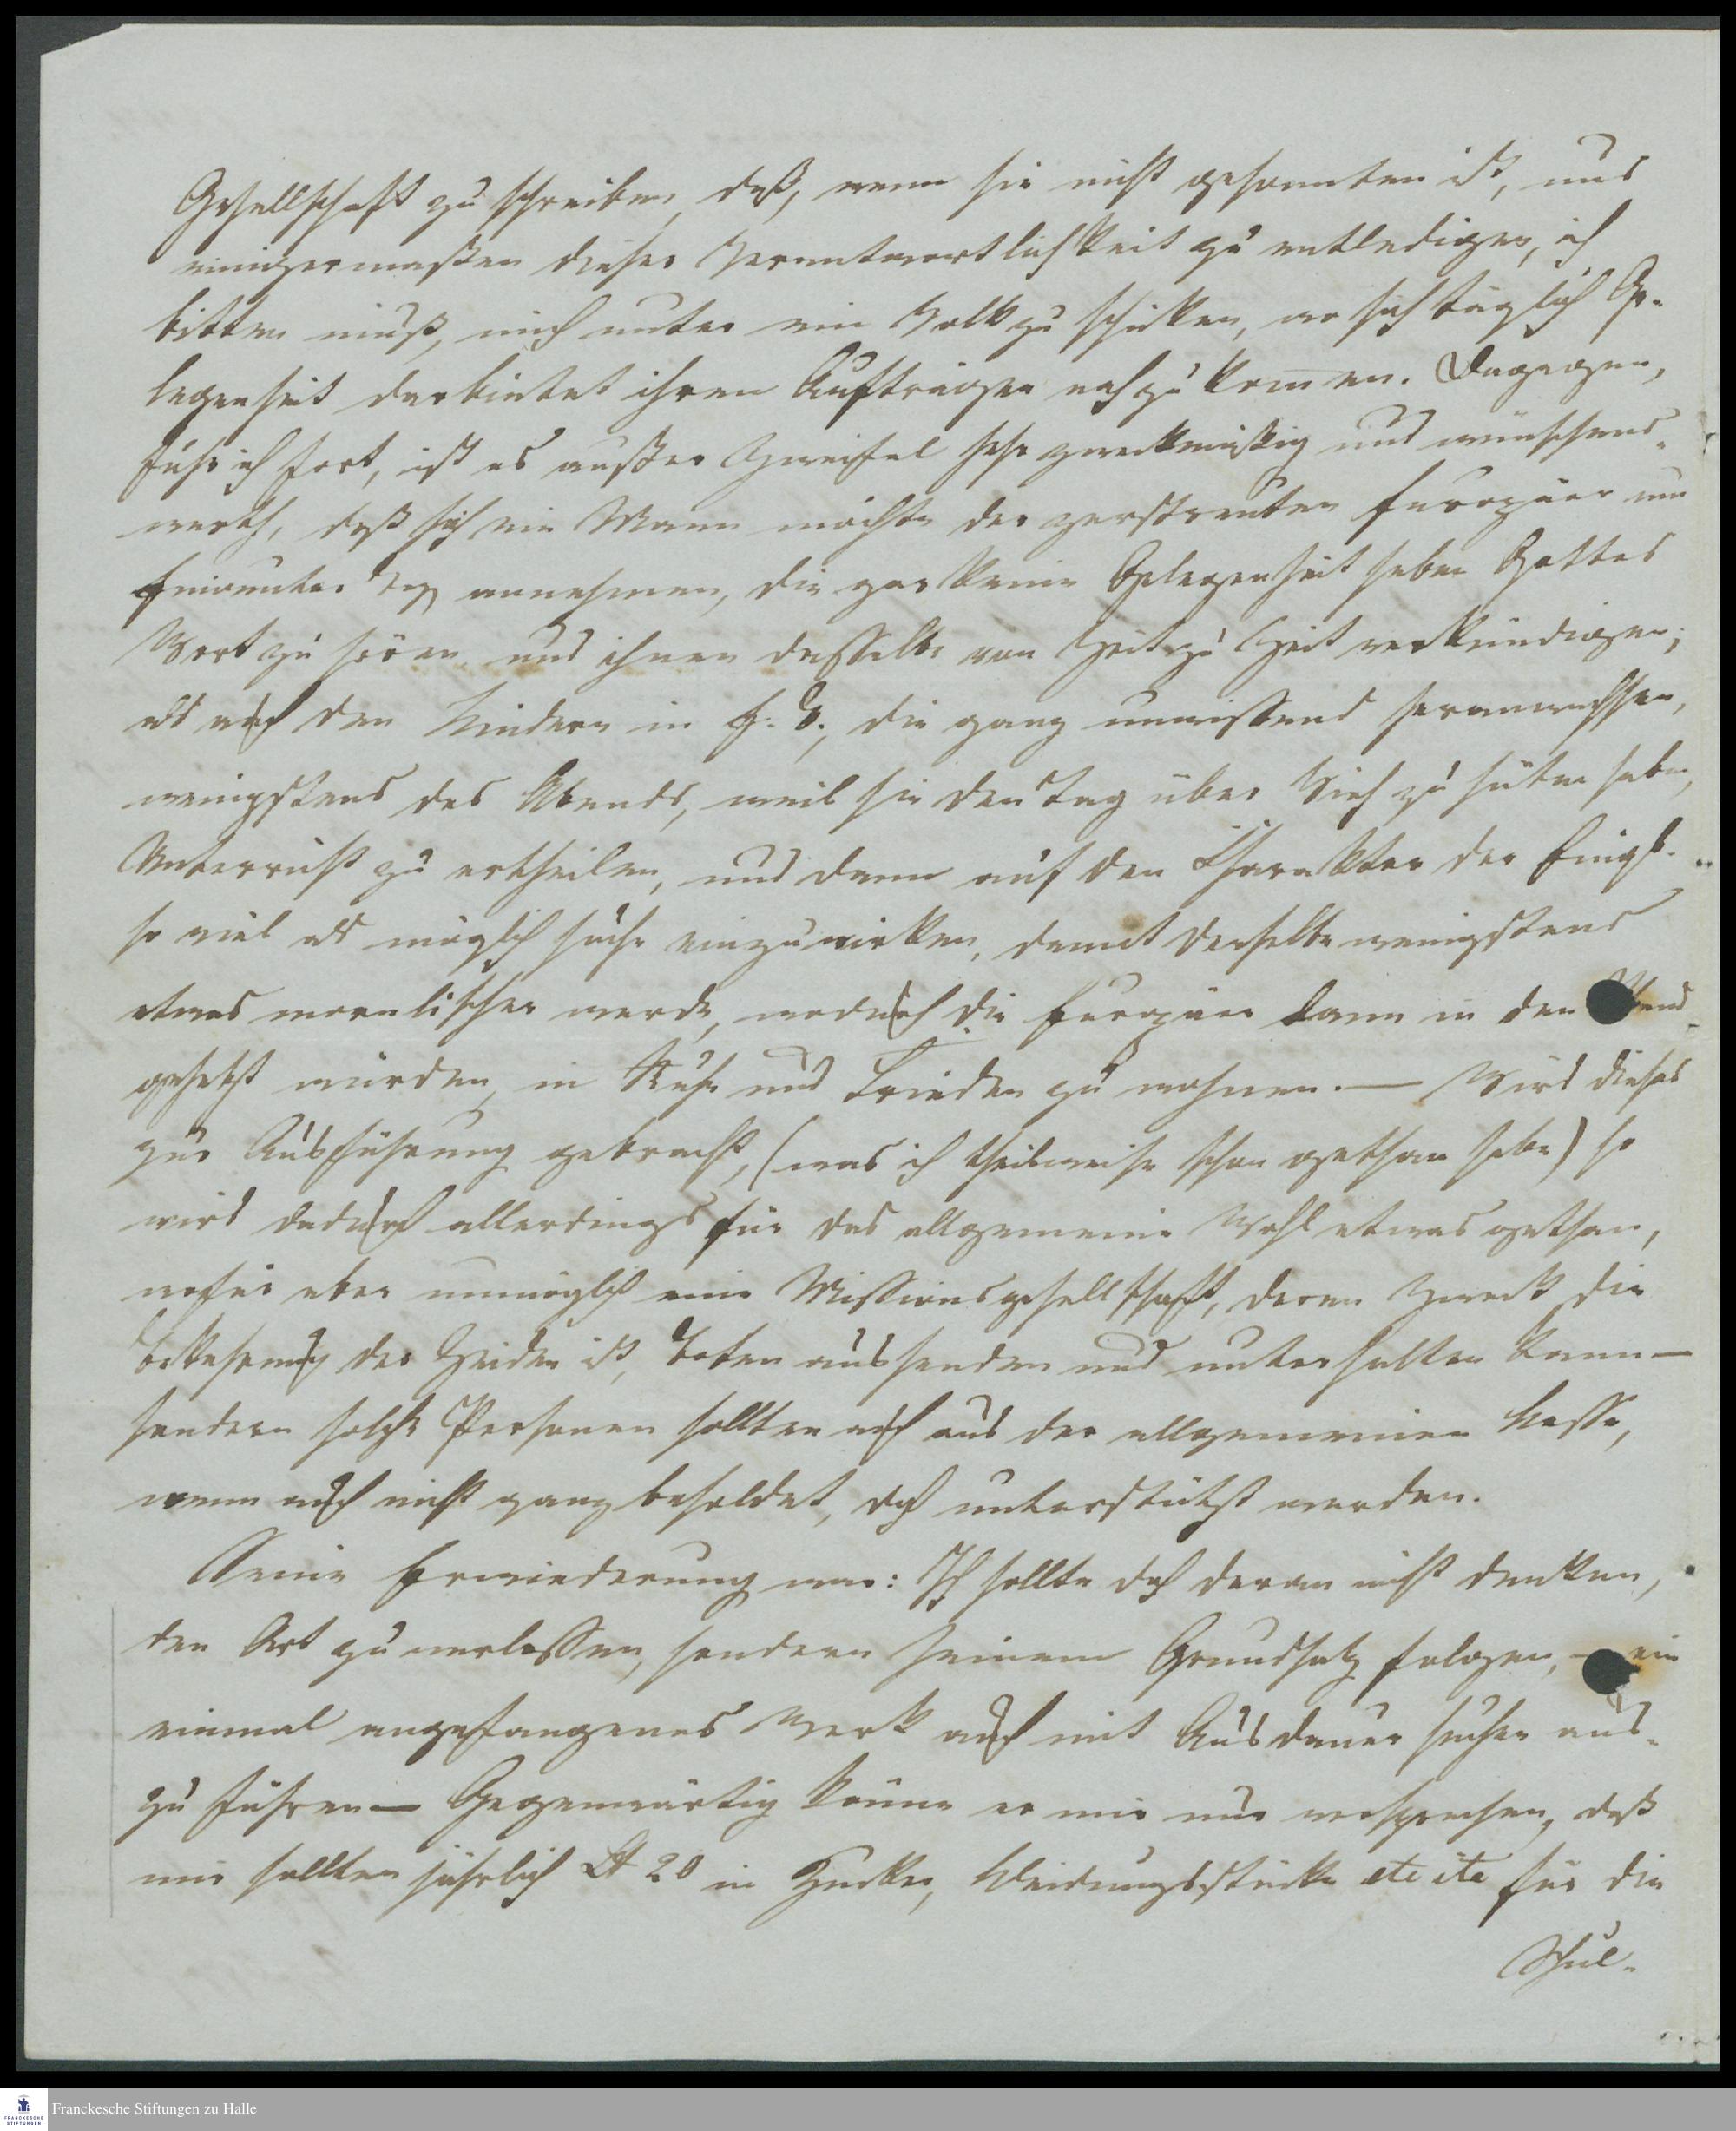 Gesellschaft zu schreiben, daß, wenn sie nicht gesonnen ist, uns
einigermaßen dieser Verantwortlichkeit zu entledigen, ich
bitten muß, mich unter ein Volk zu schicken, wo sich täglich Ge-
legenheit darbietet ihren Aufträgen nachzukommen. Dagegen,
fuhr ich fort, ist es außer Zweifel sehr zweckmäßig und wünschens-
werth, daß sich ein Mann möchte der zerstreuten Europäer um
annehmen, die gar keine Gelegenheit haben Gottes
Wort zu hören und ihnen dasselbe von Zeit zu Zeit verkündigen;
als auch den Kindern in E. B., die ganz unwissend heranwachsen,
wenigstens des Abends, weil sie den Tag über Vieh zu hüten haben,
Unterricht zu ertheilen, und dann auf den Charakter der Eingb.
so viel als möglich suche einzuwirken, damit derselbe wenigstens
etwas moralischer werde, wodurch die Europäer dann in den Stand
gesetzt würden, in Ruhe und Frieden zu wohnen. — Wird dieses
zur Ausführung gebracht, (was ich theilweise schon gethan habe) so
wird dadurch allerdings für das allgemeine Wohl etwas gethan,
wofür aber unmöglich eine Missionsgesellschaft, deren Zweck die
Bekehrung der Heiden ist, Boten aussenden und unterhalten kann —
sondern solche Personen sollten auch aus der allgemeinen Kasse,
wenn auch nicht ganz besoldet, doch unterstützt werden.
Seine Erwiederung war: Ich sollte doch daran nicht denken,
den Ort zu verlassen, sondern seinem Grundsatz folgen, – ein
einmal angefangenes Werk auch mit Ausdauer suchen aus-
zuführen — Gegenwärtig könne er mir nur versprechen, daß
mir sollten jährlich £ 20 in Zucker, Kleidungsstücke etc etc für die
Schul-
Franckesche Stiftungen zu Halle
FRANCKESCHE
STIFTUNGEN